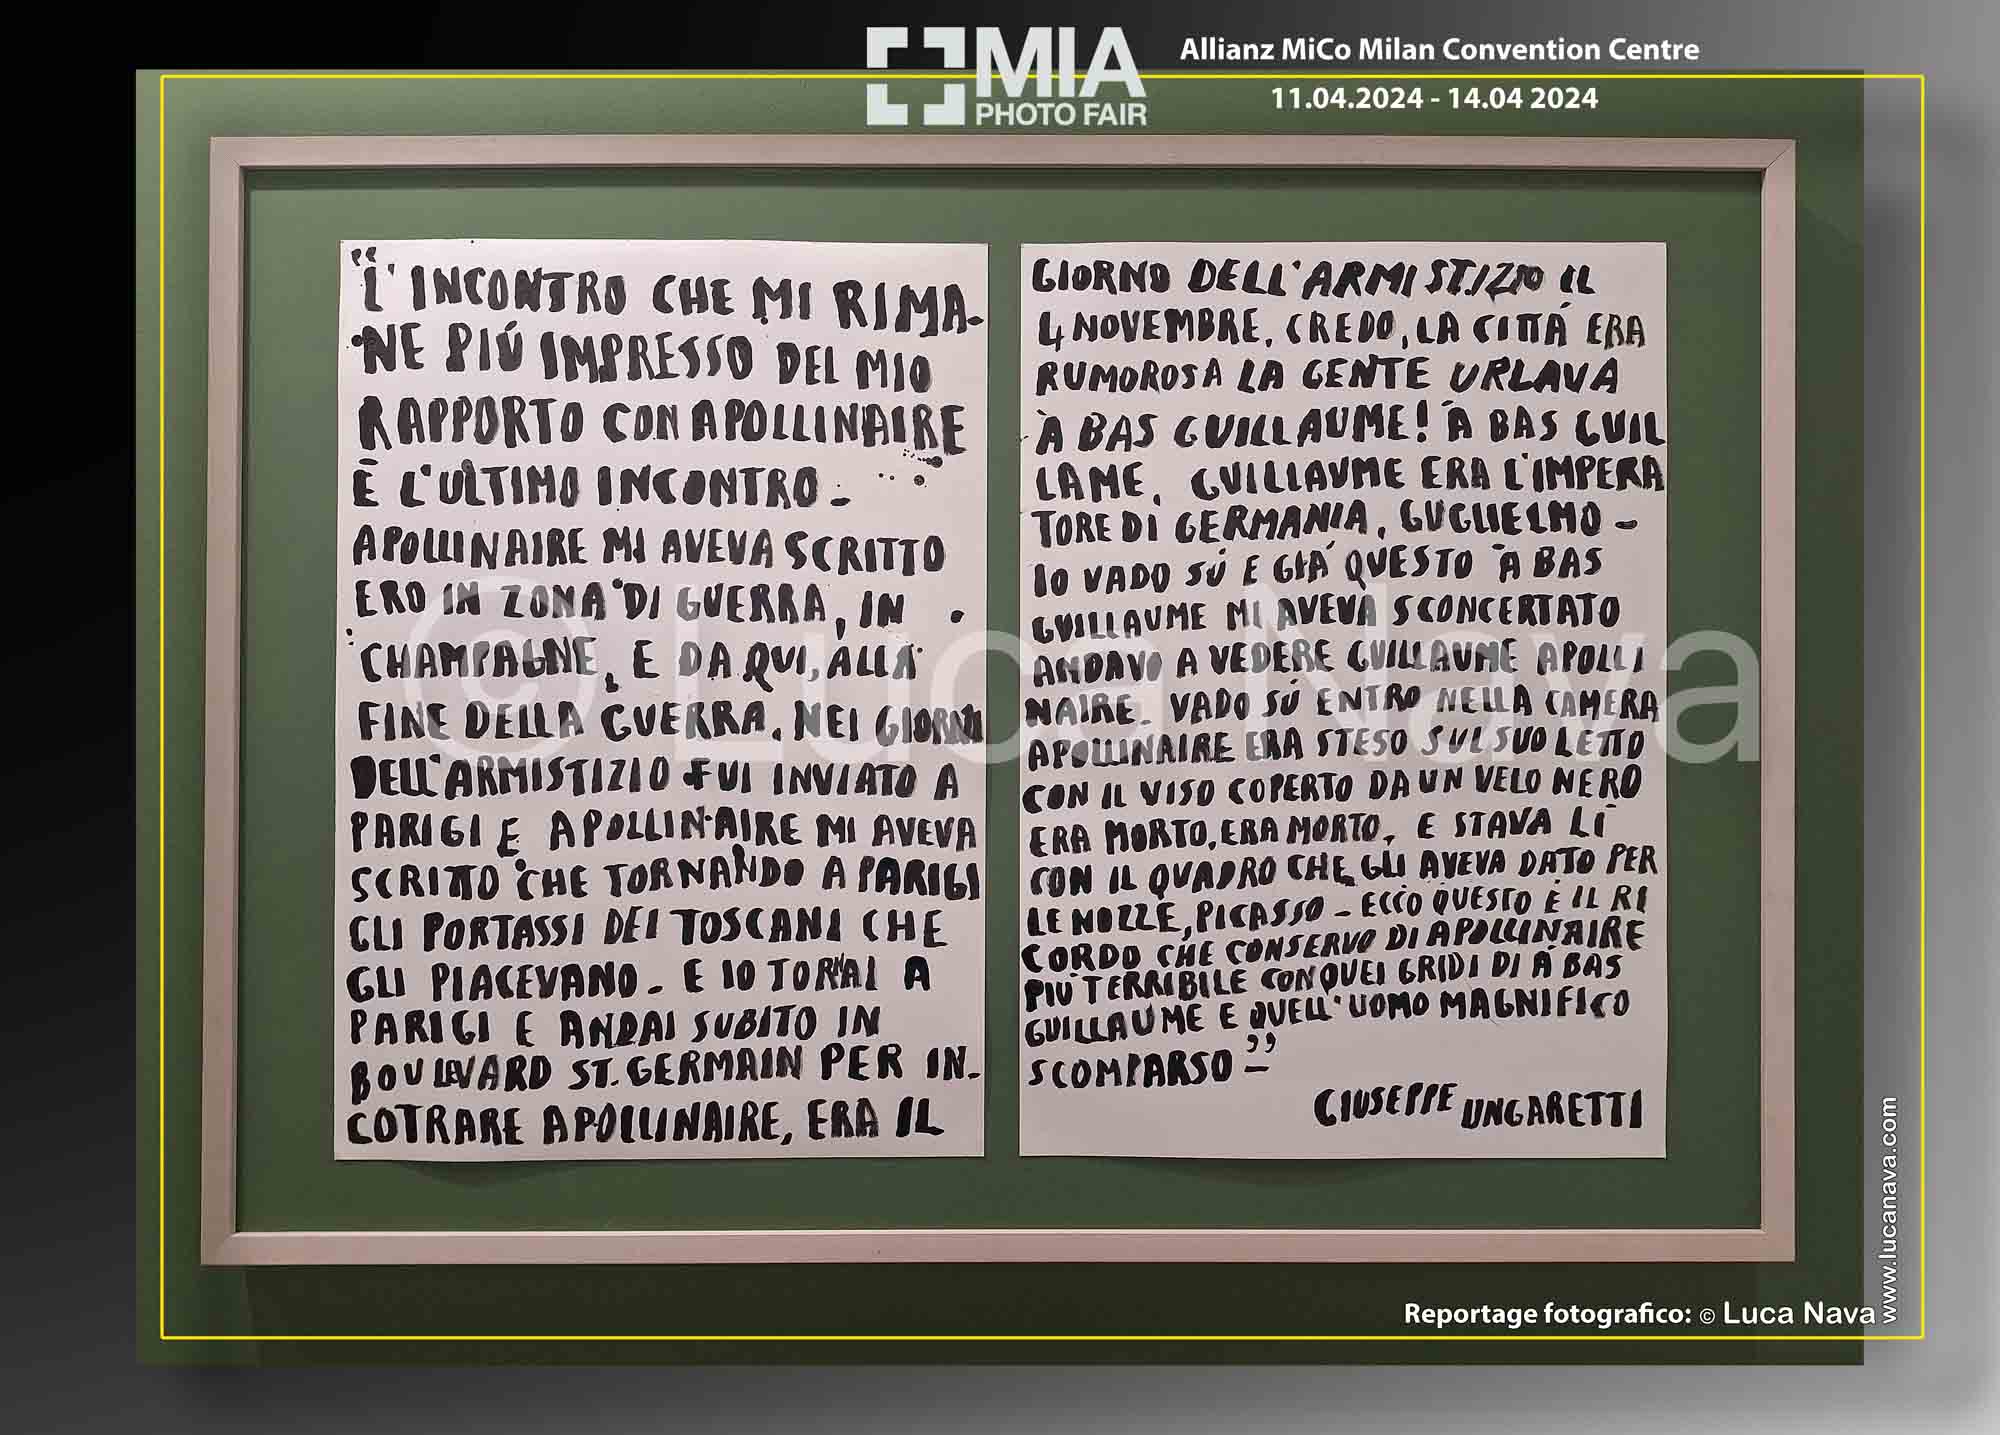 MIA
PHOTO FAIR
Allianz MiCo Milan Convention Centre
11.04.2024 - 14.04 2024
“L'INCONTRO CHE MI RIMA-
NE PIÚ IMPRESSO DEL MIO
RAPPORTO CON APOLLINAIRE
È L'ULTIMO INCONTRO -
APOLLINAIRE MI AVEVA SCRITTO
ERO IN ZONA DI GUERRA, IN
CHAMPAGNE, E DA QUI, ALLA
FINE DELLA GUERRA, NEI GIORNI
DELL'ARMISTIZIO FUI INVIATO A
PARIGI E APOLLINAIRE MI AVEVA
SCRITTO CHE TORNANDO A PARIGI
GLI PORTASSI DEI TOSCANI CHE
GLI PIACEVANO - E IO TORNAI A
PARIGI E ANDAI SUBITO IN
BOULEVARD ST. GERMAIN PER IN-
COTRARE APOLLINAIRE, ERA IL
GIORNO DELL'ARMISTIZIO IL
4 NOVEMBRE, CREDO, LA CITTÁ ERA
RUMOROSA LA GENTE URLAVA
À BAS GUILLAUME! À BAS GUIL
LAME, GUILLAUME ERA L'IMPERA
TORE DI GERMANIA, GUGLIELMO -
IO VADO SÚ E GIÀ QUESTO À BAS
GUILLAUME MI AVEVA SCONCERTATO
ANDAVO A VEDERE GUILLAUME APOLLI
NAIRE - VADO SÚ ENTRO NELLA CAMERA
APOLLINAIRE ERA STESO SUL SUO LETTO
CON IL VISO COPERTO DA UN VELO NERO
ERA MORTO, ERA MORTO, E STAVA LÍ
CON IL QUADRO CHE GLI AVEVA DATO PER
LE NOZZE, PICASSO - ECCO QUESTO È IL RI
CORDO CHE CONSERVO DI APOLLINAIRE
PIÙ TERRIBILE CON QUEI GRIDI DI À BAS
GUILLAUME E QUELL'UOMO MAGNIFICO
SCOMPARSO” -
GIUSEPPE UNGARETTI
© Luca Nava
Reportage fotografico: © Luca Nava
www.lucanava.com